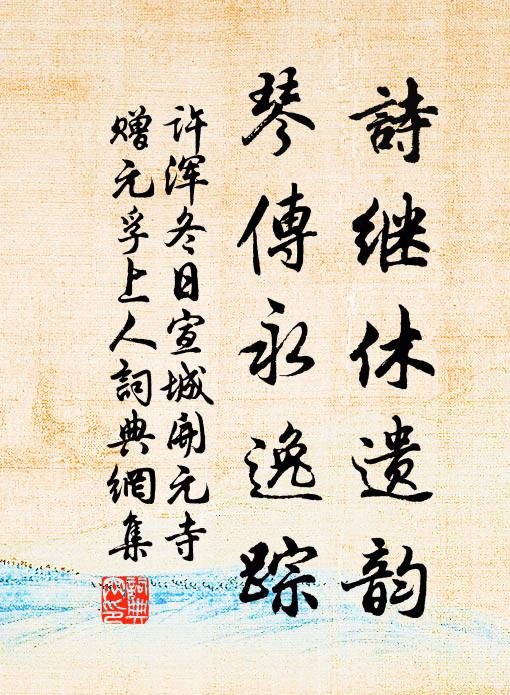 詩继休遗韵
琴傳永逸踪
许浑冬日宣城開元寺
赠元孚上人詞典網集